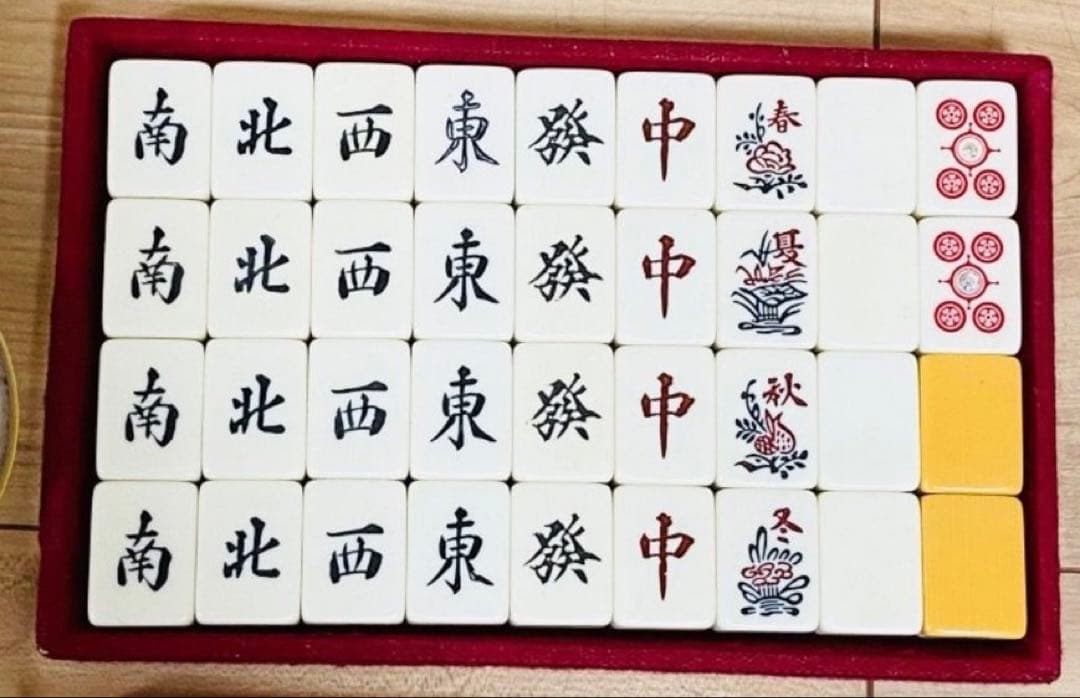 南 北 西 東 發 中 春
南 北 西 東 發 中 夏
南 北 西 東 發 中 秋
南 北 西 東 發 中 冬